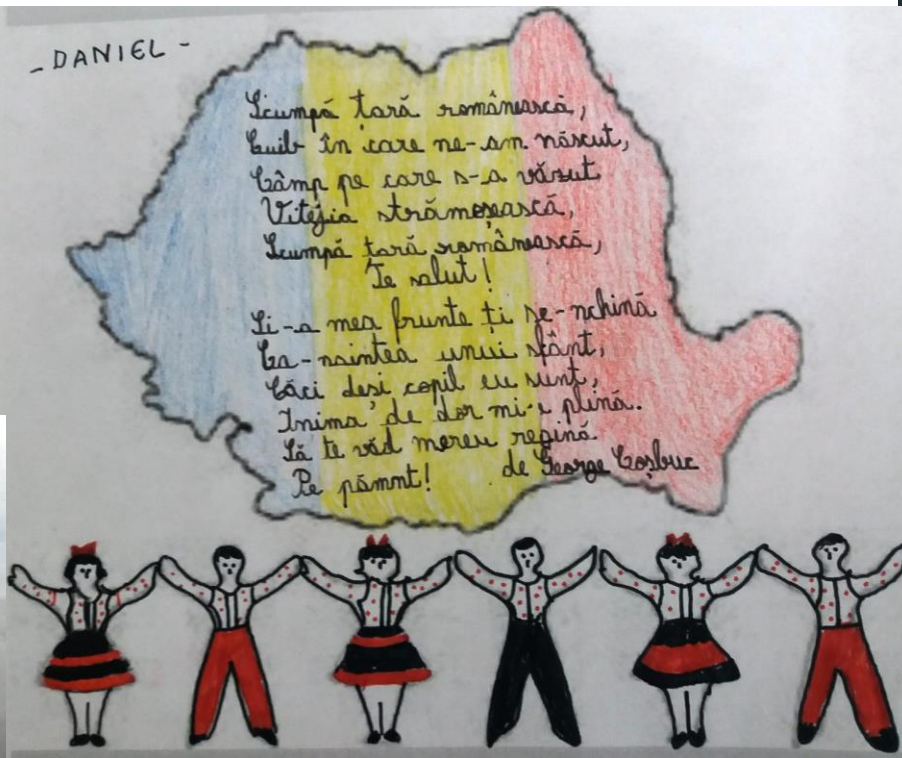 - DANIEL -
Scumpă țară românească,
Cuib în care ne-am născut,
Câmp pe care s-a văzut
Vitejia strămoșească,
Scumpă țară românească,
Te salut!
Și-a mea frunte ți se-nchină
Ca-naintea unui sfânt,
Căci deși copil eu sunt,
Inima de dor mi-e plină.
Să te văd mereu regină
Pe pămnt! de George Coșbuc